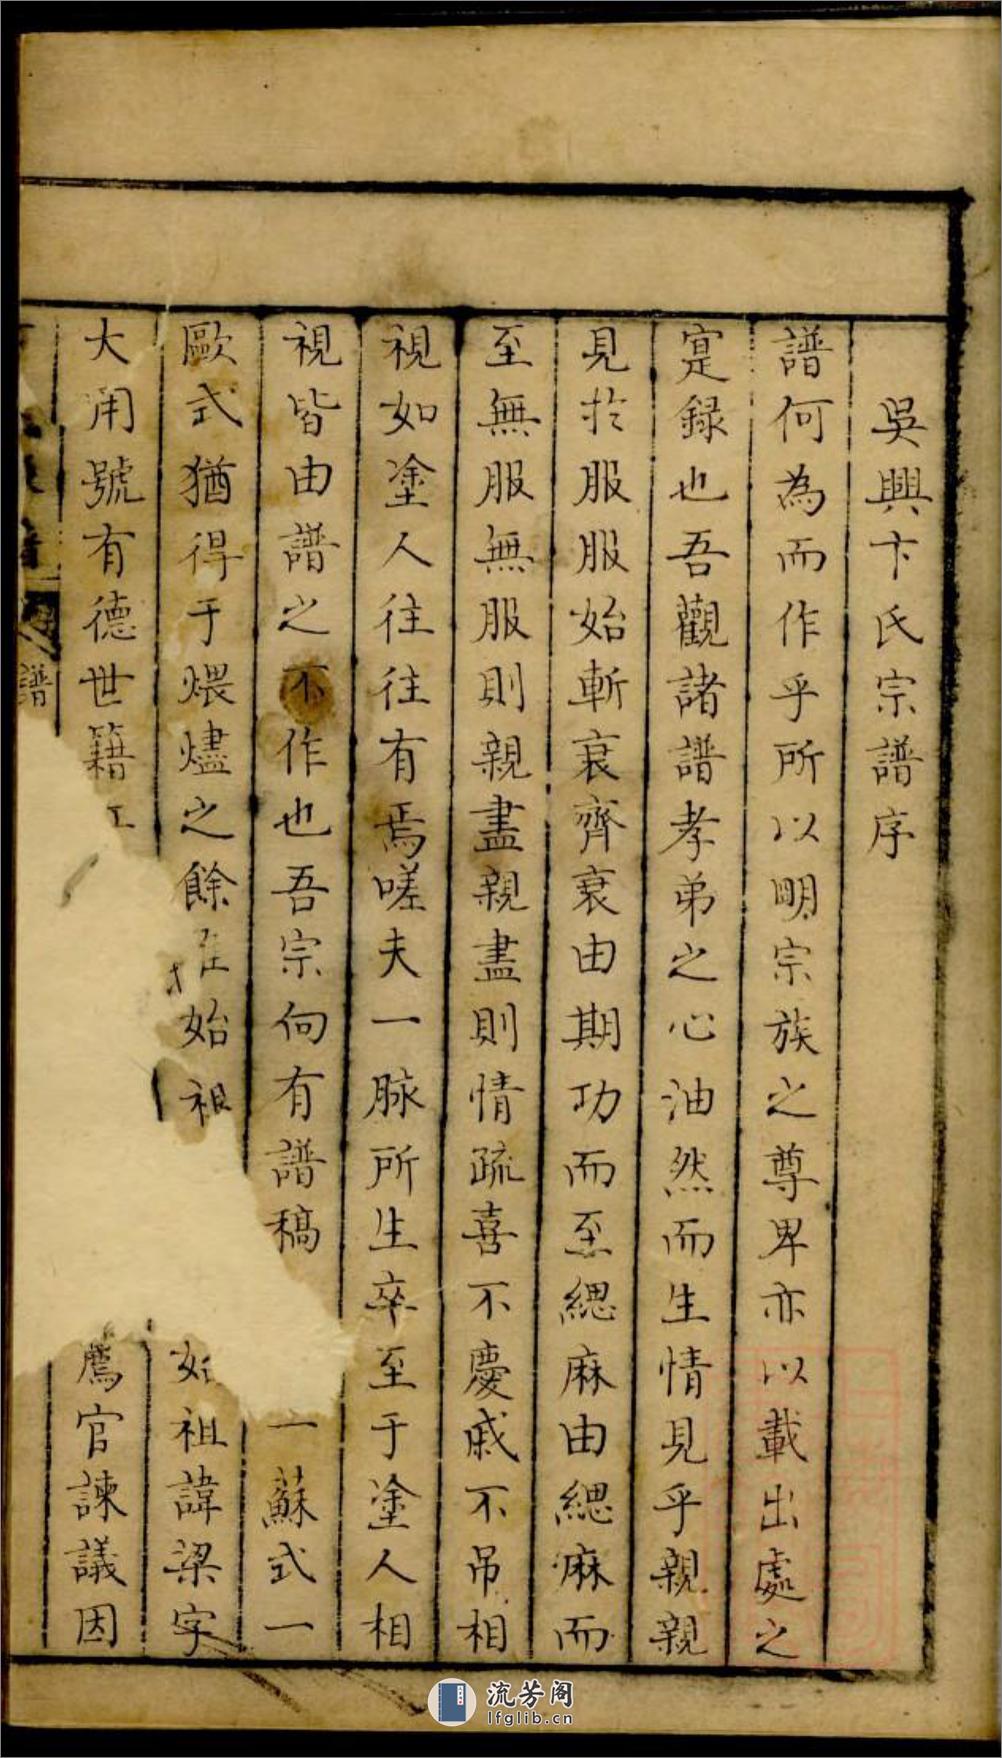 吳興卞氏宗譜序
譜何為而作乎所以明宗族之尊卑亦以載出處之
寔録也吾觀諸譜孝弟之心油然而生情見乎親親
見扵服服始斬衰齊衰由期功而至緦麻由緦麻而
至無服無服則親盡親盡則情疏喜不慶戚不吊相
視如塗人往往有焉嗟夫一脉所生卒至于塗人相
視皆由譜之不作也吾宗向有譜稿一蘇式一
歐式猶得于煨燼之餘始祖始祖諱梁字
大用號有德世籍薦官諫議因
譜
流芳阁
lfglib.cn